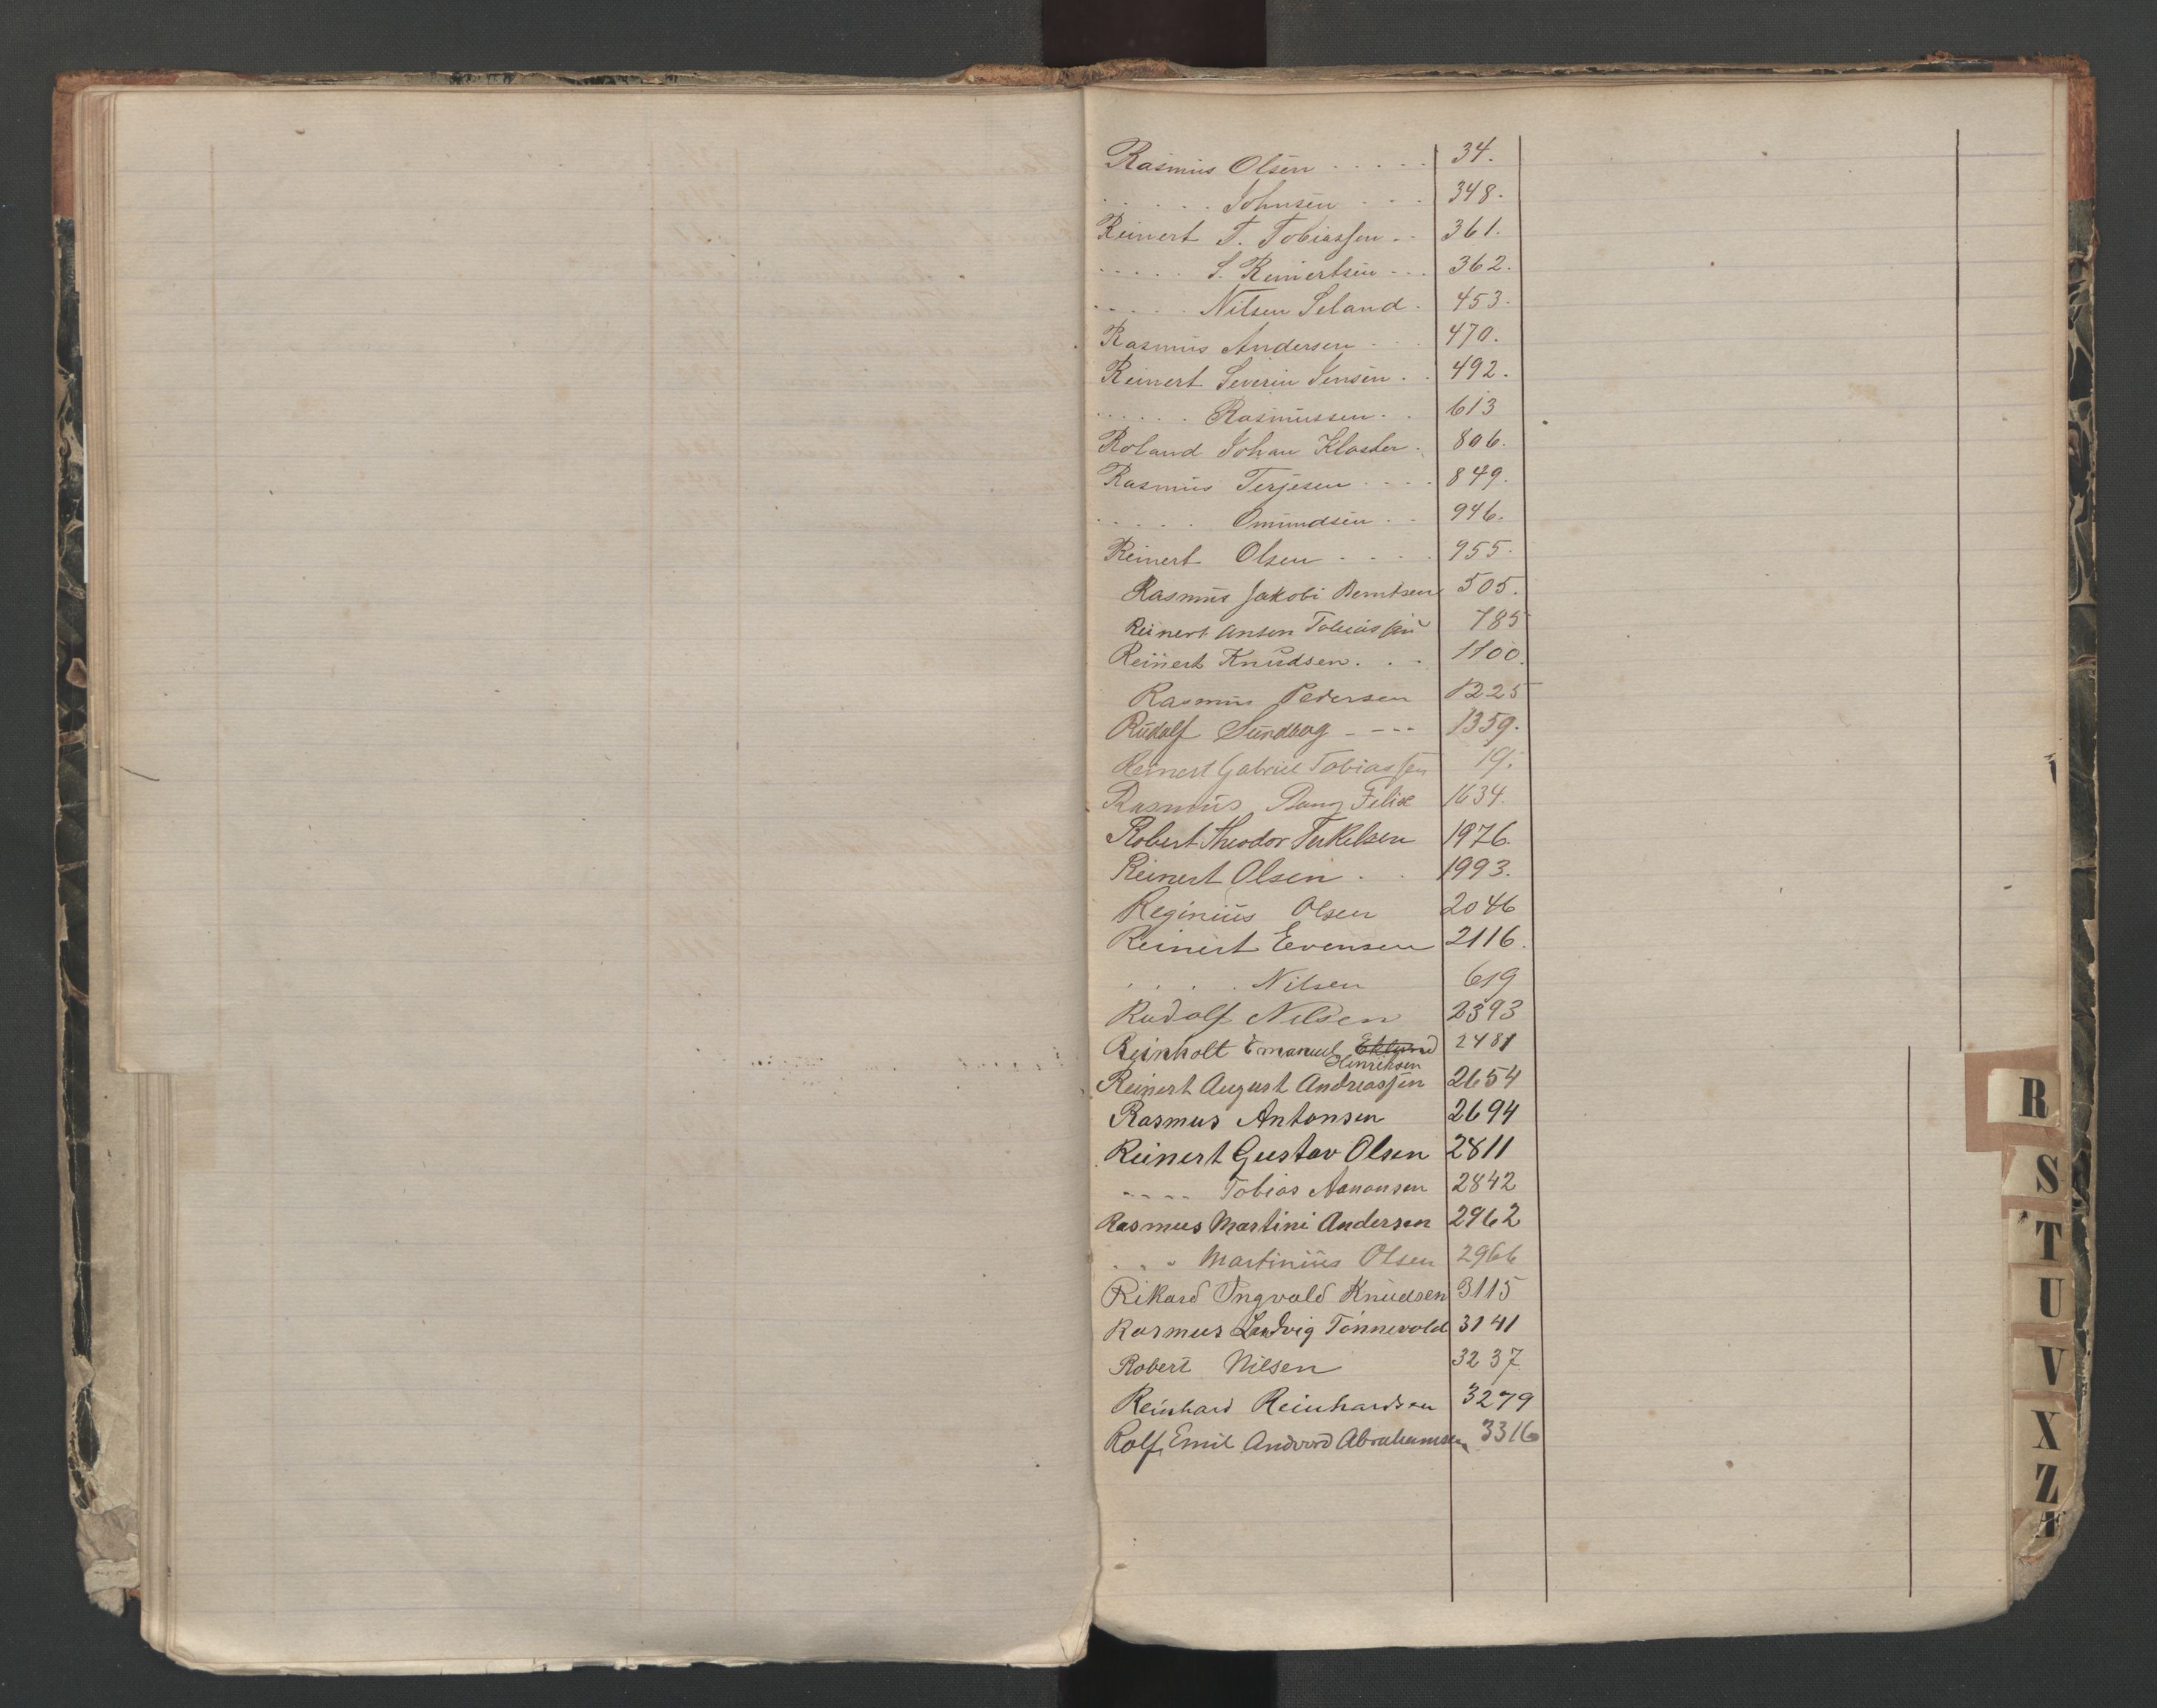 Rasmus Olsen . . . . . 34.
. . . . . Johnsen . . . 348.
Reinert T. Tobiassen . . 361.
. . . . . S. Reinertsen . . . 362.
. . . . . Nilsen Seland . 453.
Rasmus Andersen . . . 470.
Reinert Severin Jensen . . 492.
. . . . . Rasmussen . . 613
Roland Johan Kloster . 806.
Rasmus Terjesen . . . . 849.
. . . . . Omundsen . . 946.
Reinert Olsen . . . . 955.
Rasmus Jakobi Berntsen 505.
Reinert Anton Tobiassen 785
Reinert Knudsen . . . 1100.
Rasmus Pedersen 1225
Rudolf Sundbag - - - - 1359.
Reinert Gabriel Tobiassen 19.
Rasmus Bang Felix 1634.
Robert Theodor Terkelsen 1976.
Reinert Olsen . . 1993.
Reginius Olsen 2046
Reinert Evensen 2116.
. . . . Nilsen 619
Rudolf Nilsen 2393
Reinholt Emanuel Eklund 2481
Henriksen
Reinert August Andreassen 2654
Rasmus Antonsen 2694
Reinert Gustav Olsen 2811
- - - - Tobias Aanonsen 2842
Rasmus Martini Andersen 2962
. . . Martinius Olsen 2966
Rikard Ingvald Knudsen 3115
Rasmus Ludvig Tønnevold 3141
Robert Nilsen 3237
Reinhard Reinhardsen 3279
Rolf Emil Andvord Abrahamsen 3316
R
S
T
U
V
X
Z
Æ